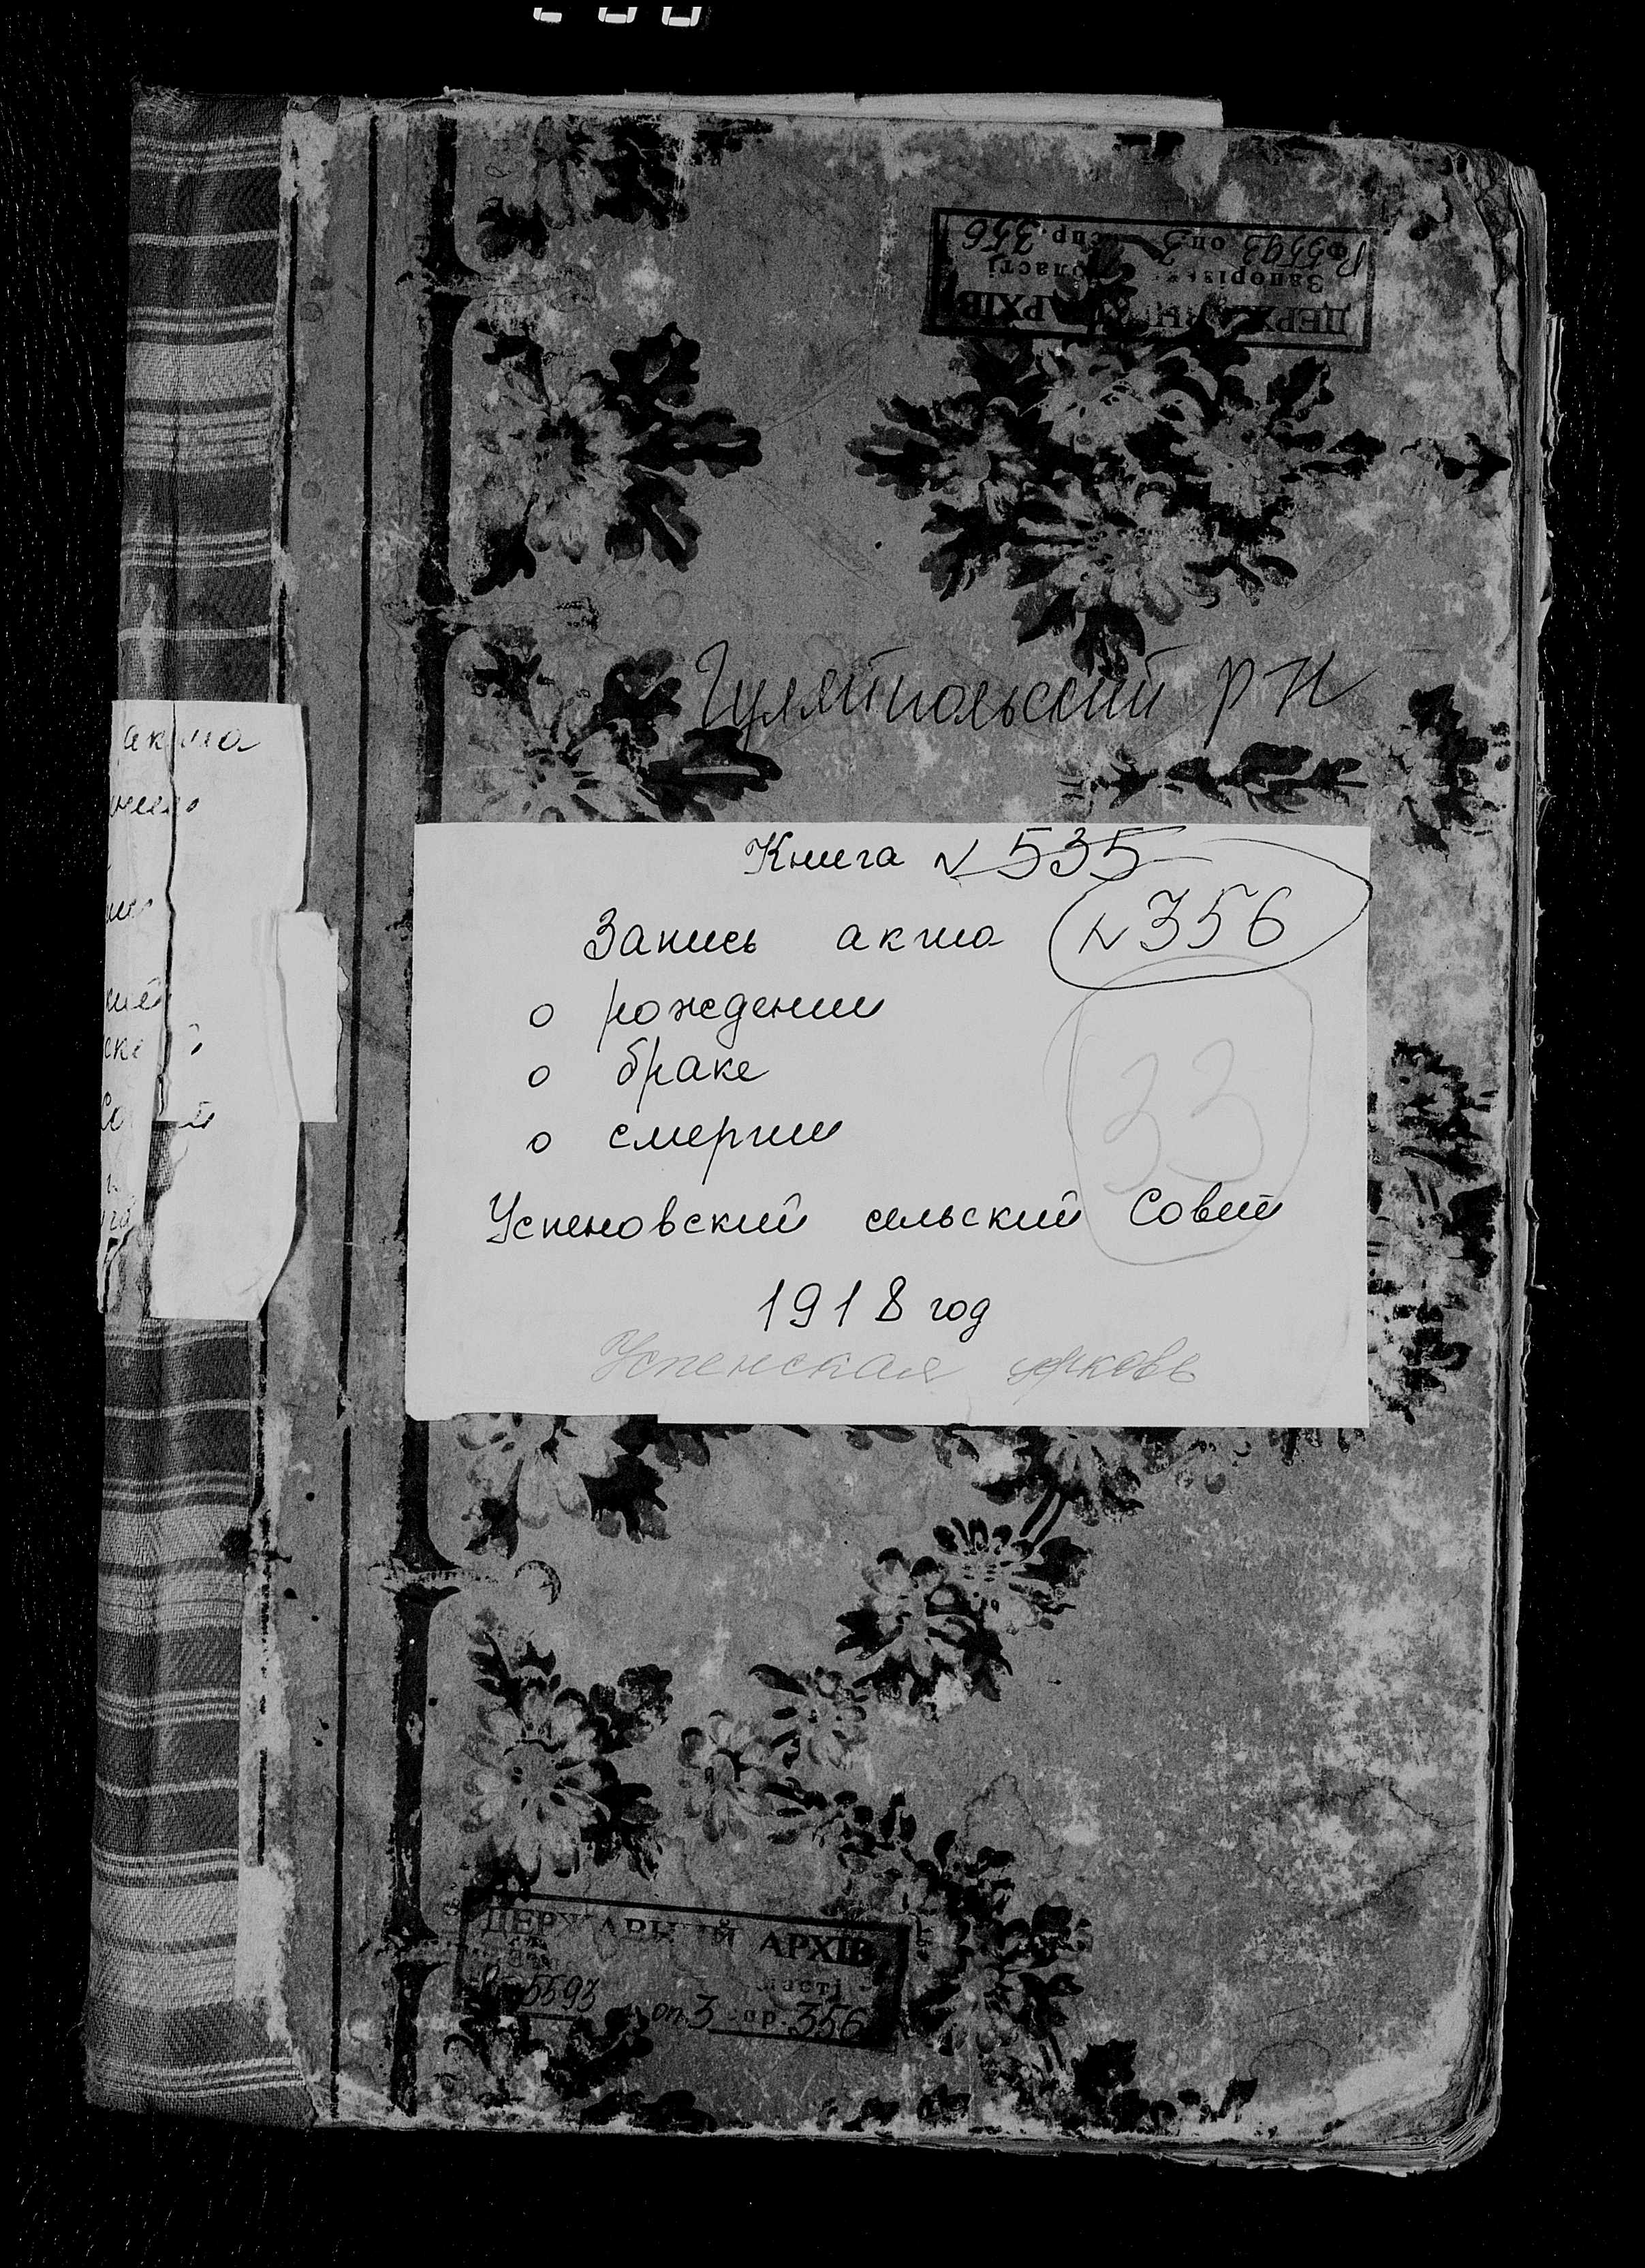 ДЕРЖАВНИЙ АРХІВ
Ф. Р5593 оп. 3 спр. 356
Гуляйпольский р н
акта
Книга № 535
Запись акта № 356
о рождении
о браке
о смерти
33
Успеновский сельский Совет
1918 год
Успенская церковь
ДЕРЖАВНИЙ АРХІВ
Р-5593 оп. 3 спр. 356